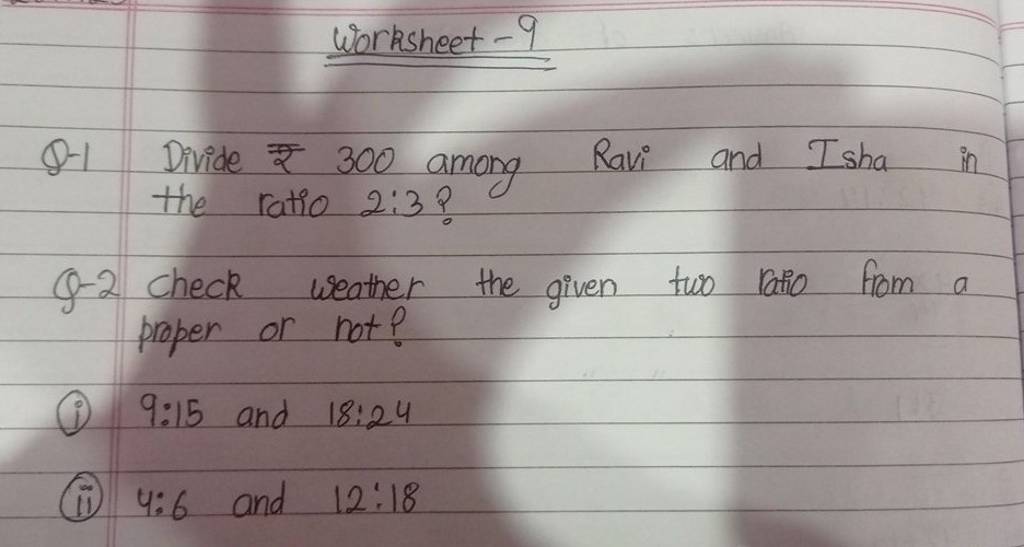 Worksheet - 9
Q-1 Divide ₹ 300 among Ravi and Isha in
the ratio 2:3?
Q-2 Check weather the given two ratio from a
proper or not?
(i) 9:15 and 18:24
(ii) 4:6 and 12:18